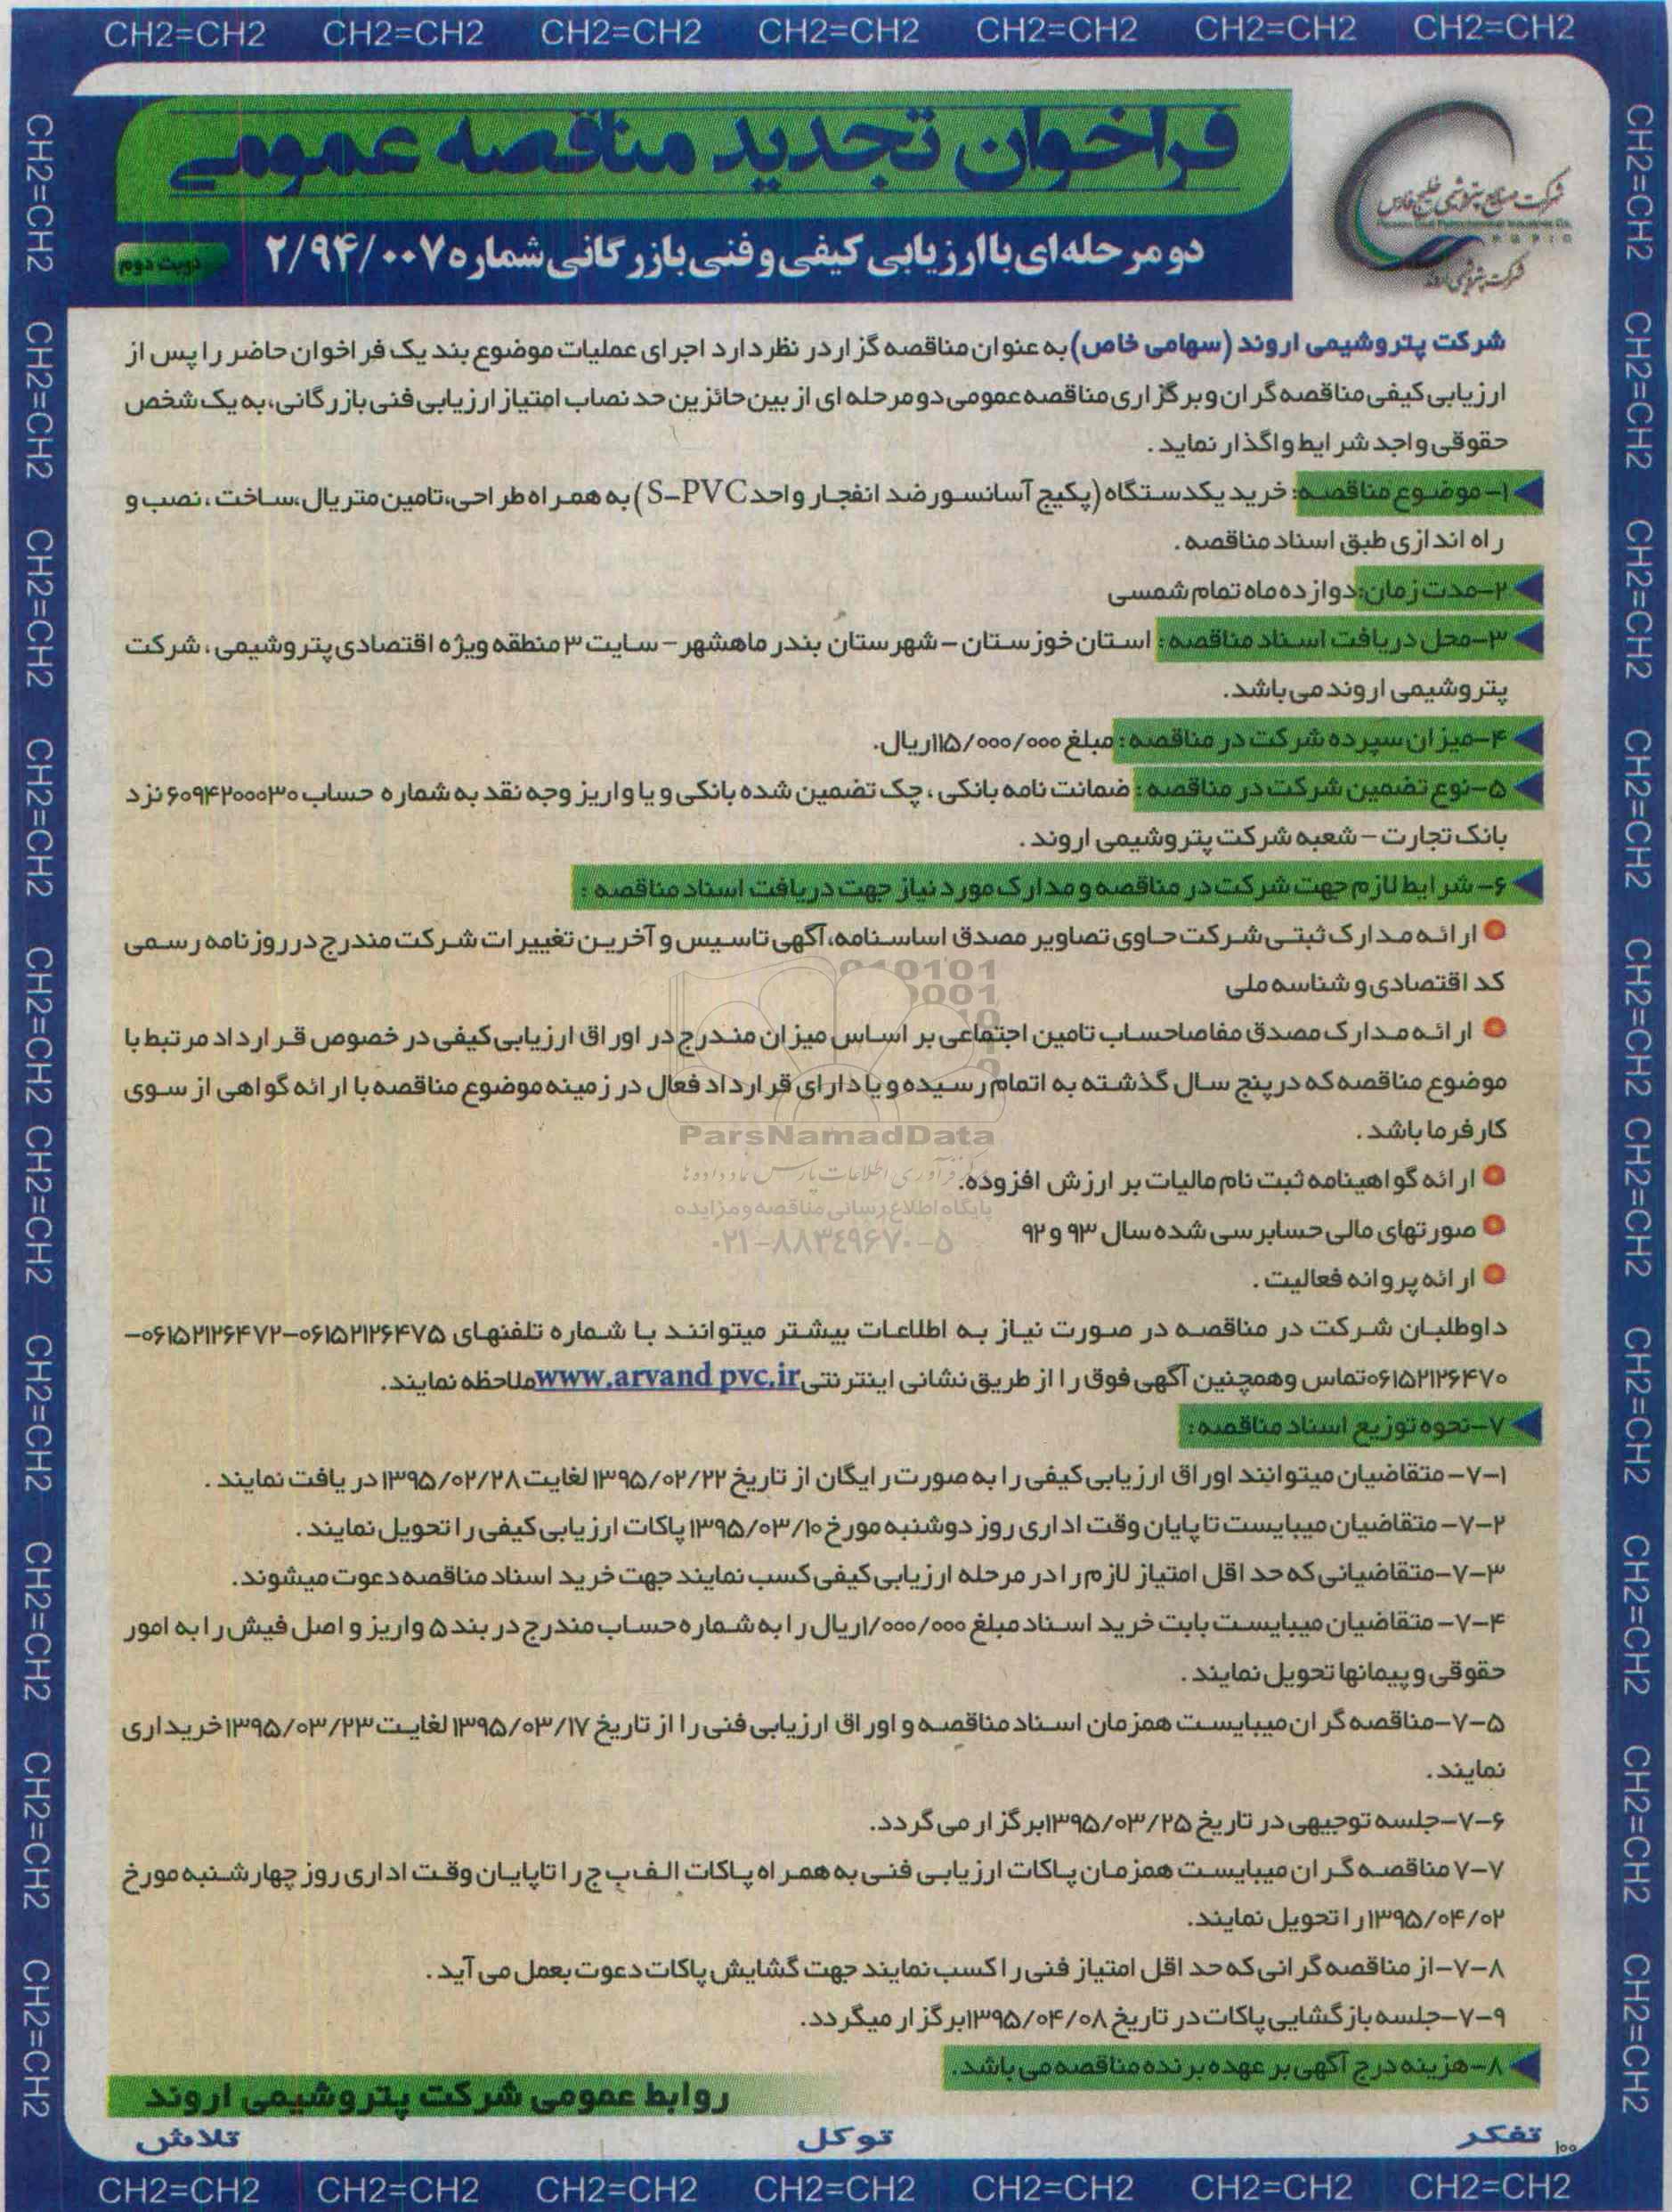 CH2=CH2 CH2=CH2 CH2=CH2 CH2=CH2 CH2=CH2 CH2=CH2 CH2=CH2
فراخوان تجدید مناقصه عمومی
دو مرحله ای با ارزیابی کیفی و فنی بازرگانی شماره ۲/۹۴/۰۰۷
نوبت دوم
شرکت صنایع پتروشیمی خلیج فارس
Persian Gulf Petrochemical Industries Co.
P G P I C
شرکت پتروشیمی اروند
شرکت پتروشیمی اروند (سهامی خاص) به عنوان مناقصه گزار در نظر دارد اجرای عملیات موضوع بند یک فراخوان حاضر را پس از
ارزیابی کیفی مناقصه گران و برگزاری مناقصه عمومی دو مرحله ای از بین حائزین حد نصاب امتیاز ارزیابی فنی بازرگانی، به یک شخص
حقوقی واجد شرایط واگذار نماید .
۱- موضوع مناقصه: خرید یکدستگاه (پکیج آسانسور ضد انفجار واحد S-PVC) به همراه طراحی، تامین متریال، ساخت ، نصب و
راه اندازی طبق اسناد مناقصه .
۲-مدت زمان: دوازده ماه تمام شمسی
۳-محل دریافت اسناد مناقصه : استان خوزستان – شهرستان بندر ماهشهر – سایت ۳ منطقه ویژه اقتصادی پتروشیمی ، شرکت
پتروشیمی اروند می باشد.
۴-میزان سپرده شرکت در مناقصه : مبلغ ۱۱۵/۰۰۰/۰۰۰ریال.
۵-نوع تضمین شرکت در مناقصه : ضمانت نامه بانکی ، چک تضمین شده بانکی و یا واریز وجه نقد به شماره حساب ۶۰۹۴۲۰۰۰۳۰ نزد
بانک تجارت – شعبه شرکت پتروشیمی اروند .
۶- شرایط لازم جهت شرکت در مناقصه و مدارک مورد نیاز جهت دریافت اسناد مناقصه :
ارائه مدارک ثبتی شرکت حاوی تصاویر مصدق اساسنامه، آگهی تاسیس و آخرین تغییرات شرکت مندرج در روزنامه رسمی
کد اقتصادی و شناسه ملی
ارائه مدارک مصدق مفاصاحساب تامین اجتماعی بر اساس میزان مندرج در اوراق ارزیابی کیفی در خصوص قرارداد مرتبط با
موضوع مناقصه که در پنج سال گذشته به اتمام رسیده و یا دارای قرارداد فعال در زمینه موضوع مناقصه با ارائه گواهی از سوی
کارفرما باشد .
ParsNamadData
ارائه گواهینامه ثبت نام مالیات بر ارزش افزوده.
پایگاه اطلاع رسانی مناقصه و مزایده
صورتهای مالی حسابرسی شده سال ۹۳ و ۹۲
۰۲۱-۸۸۳٤۹۶۷۰-۵
ارائه پروانه فعالیت .
داوطلبان شرکت در مناقصه در صورت نیاز به اطلاعات بیشتر میتوانند با شماره تلفنهای ۰۶۱۵۲۱۲۶۴۷۵-۰۶۱۵۲۱۲۶۴۷۲-
۰۶۱۵۲۱۲۶۴۷۰تماس وهمچنین آگهی فوق را از طریق نشانی اینترنتی www.arvand pvc.ir ملاحظه نمایند.
۷-نحوه توزیع اسناد مناقصه:
۷-۱- متقاضیان میتوانند اوراق ارزیابی کیفی را به صورت رایگان از تاریخ ۱۳۹۵/۰۲/۲۲ لغایت ۱۳۹۵/۰۲/۲۸ دریافت نمایند .
۷-۲- متقاضیان میبایست تا پایان وقت اداری روز دوشنبه مورخ ۱۳۹۵/۰۳/۱۰ پاکات ارزیابی کیفی را تحویل نمایند .
۷-۳-متقاضیانی که حد اقل امتیاز لازم را در مرحله ارزیابی کیفی کسب نمایند جهت خرید اسناد مناقصه دعوت میشوند.
۷-۴- متقاضیان میبایست بابت خرید اسناد مبلغ ۱/۰۰۰/۰۰۰ریال را به شماره حساب مندرج در بند ۵ واریز و اصل فیش را به امور
حقوقی و پیمانها تحویل نمایند .
۷-۵-مناقصه گران میبایست همزمان اسناد مناقصه و اوراق ارزیابی فنی را از تاریخ ۱۳۹۵/۰۳/۱۷ لغایت ۱۳۹۵/۰۳/۲۳ خریداری
نمایند .
۷-۶-جلسه توجیهی در تاریخ ۱۳۹۵/۰۳/۲۵برگزار می گردد.
۷-۷ مناقصه گران میبایست همزمان پاکات ارزیابی فنی به همراه پاکات الف ب ج را تاپایان وقت اداری روز چهارشنبه مورخ
۱۳۹۵/۰۴/۰۲ را تحویل نمایند.
۷-۸-از مناقصه گرانی که حد اقل امتیاز فنی را کسب نمایند جهت گشایش پاکات دعوت بعمل می آید .
۷-۹-جلسه بازگشایی پاکات در تاریخ ۱۳۹۵/۰۴/۰۸برگزار میگردد.
۸-هزینه درج آگهی بر عهده برنده مناقصه می باشد.
روابط عمومی شرکت پتروشیمی اروند
تفکر توکل تلاش
۱۰۰
CH2=CH2 CH2=CH2 CH2=CH2 CH2=CH2 CH2=CH2 CH2=CH2 CH2=CH2